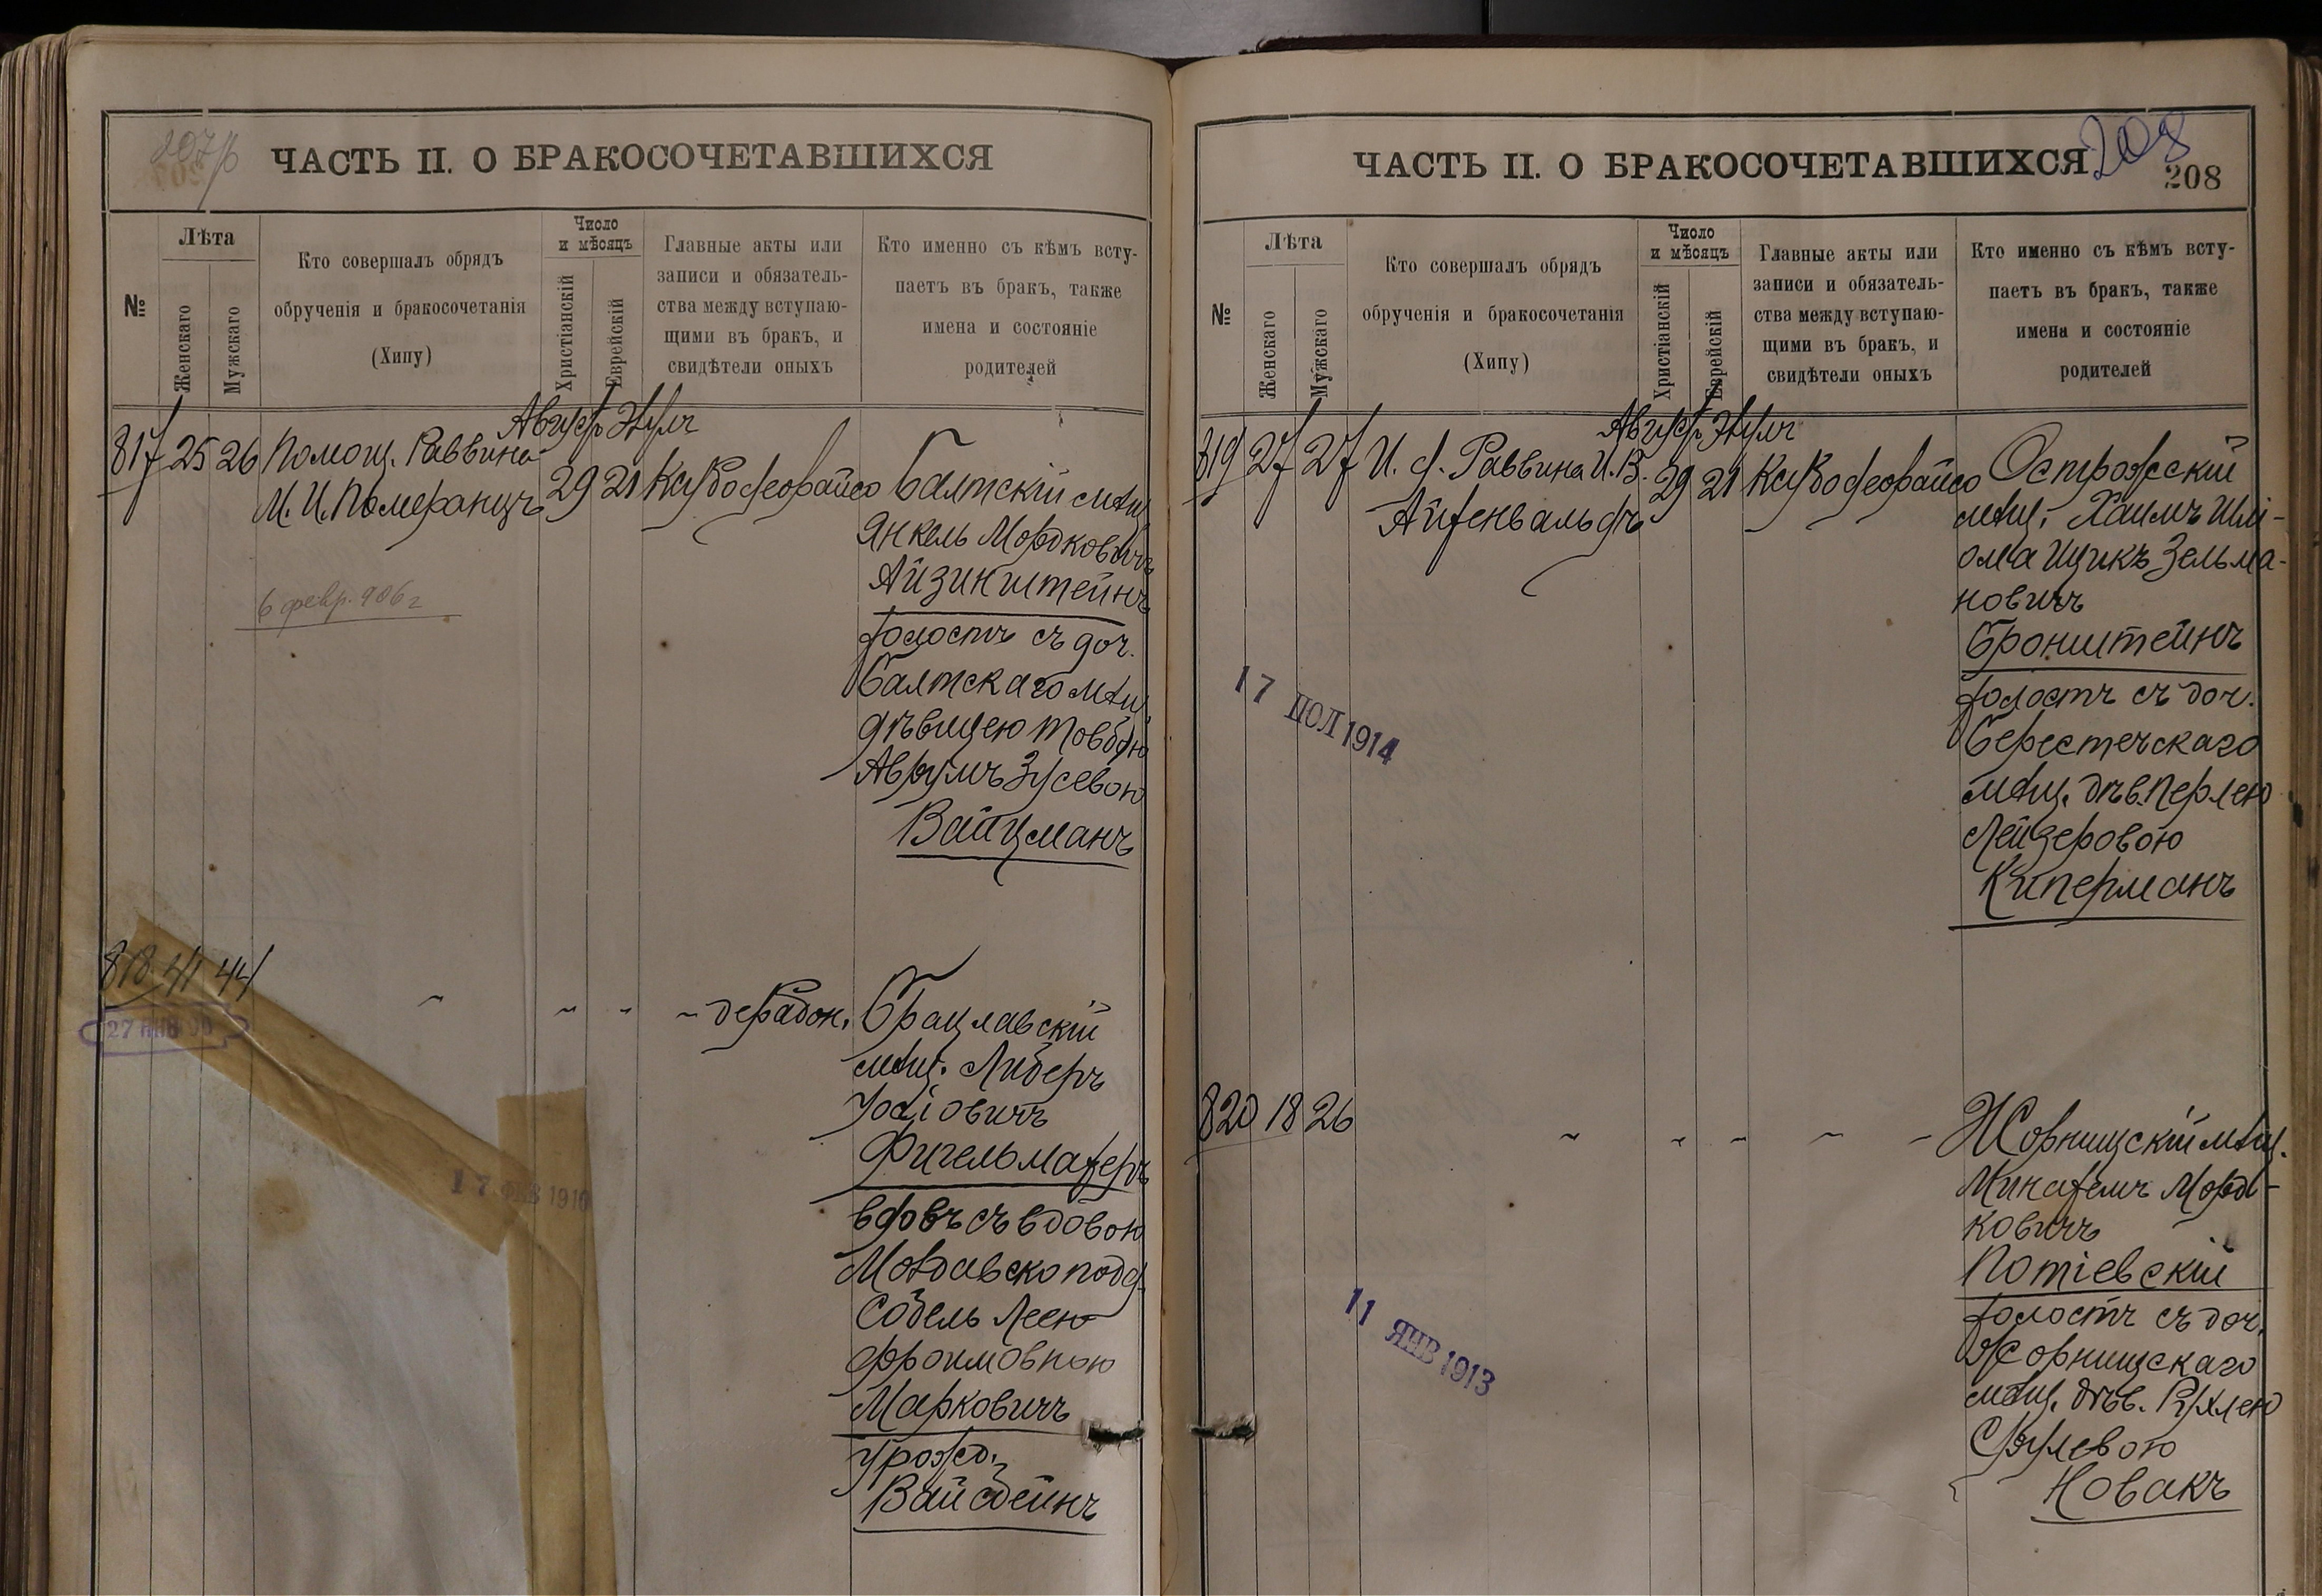 207/б
ЧАСТЬ II. О БРАКОСОЧЕТАВШИХСЯ
№
Лѣта
Женскаго
Мужскаго
Кто совершалъ обрядъ
обрученія и бракосочетанія
(Хипу)
Число
и мѣсяцъ
Христіанскій
Еврейскій
Главные акты или
записи и обязатель-
ства между вступаю-
щими въ бракъ, и
свидѣтели оныхъ
Кто именно съ кѣмъ всту-
паетъ въ бракъ, также
имена и состояніе
родителей
Август. Элулъ
817 25 26 Помощ. Раввина
М. И. Померанцъ
29 21
Балтскій мѣщ.
Янкель Мордковичъ
Айзикштейнъ
холостъ съ доч.
Балтскаго мѣщ.
дѣвицею Товбою
Аврумъ Зусевою
Вайцманъ
6 февр. 906 г
818 41 44
27 ЯНВ
" " " "
17 ФЕВ 1910
Брацлавскій
мѣщ. Либеръ
Іосіовичъ
Фигельмахеръ
вдовъ съ вдовою
Молдавско подд.
Собель Леею
Фроимовною
Марковичъ
урожд.
Вайсбейнъ
208
ЧАСТЬ II. О БРАКОСОЧЕТАВШИХСЯ
208
№
Лѣта
Женскаго
Мужскаго
Кто совершалъ обрядъ
обрученія и бракосочетанія
(Хипу)
Число
и мѣсяцъ
Христіанскій
Еврейскій
Главные акты или
записи и обязатель-
ства между вступаю-
щими въ бракъ, и
свидѣтели оныхъ
Кто именно съ кѣмъ всту-
паетъ въ бракъ, также
имена и состояніе
родителей
Август. Элулъ
819 27 27 И. д. Раввина И. В.
Айхенвальдъ
29 21
Острожскій
мѣщ. Хаимъ Шлі-
ома Ицикъ Зельма-
новичъ
Бронштейнъ
холостъ съ доч.
Берестечскаго
мѣщ. дѣв. Перлею
Лейзеровою
Киперманъ
17 ІЮЛ 1914
820 18 26
" " " " "
Жорнищскій мѣщ.
Минахемъ Морд-
ковичъ
Потіевскій
холостъ съ доч.
Жорнищскаго
мѣщ. дѣв. Рухлею
Срулевою
Новакъ
11 ЯНВ 1913